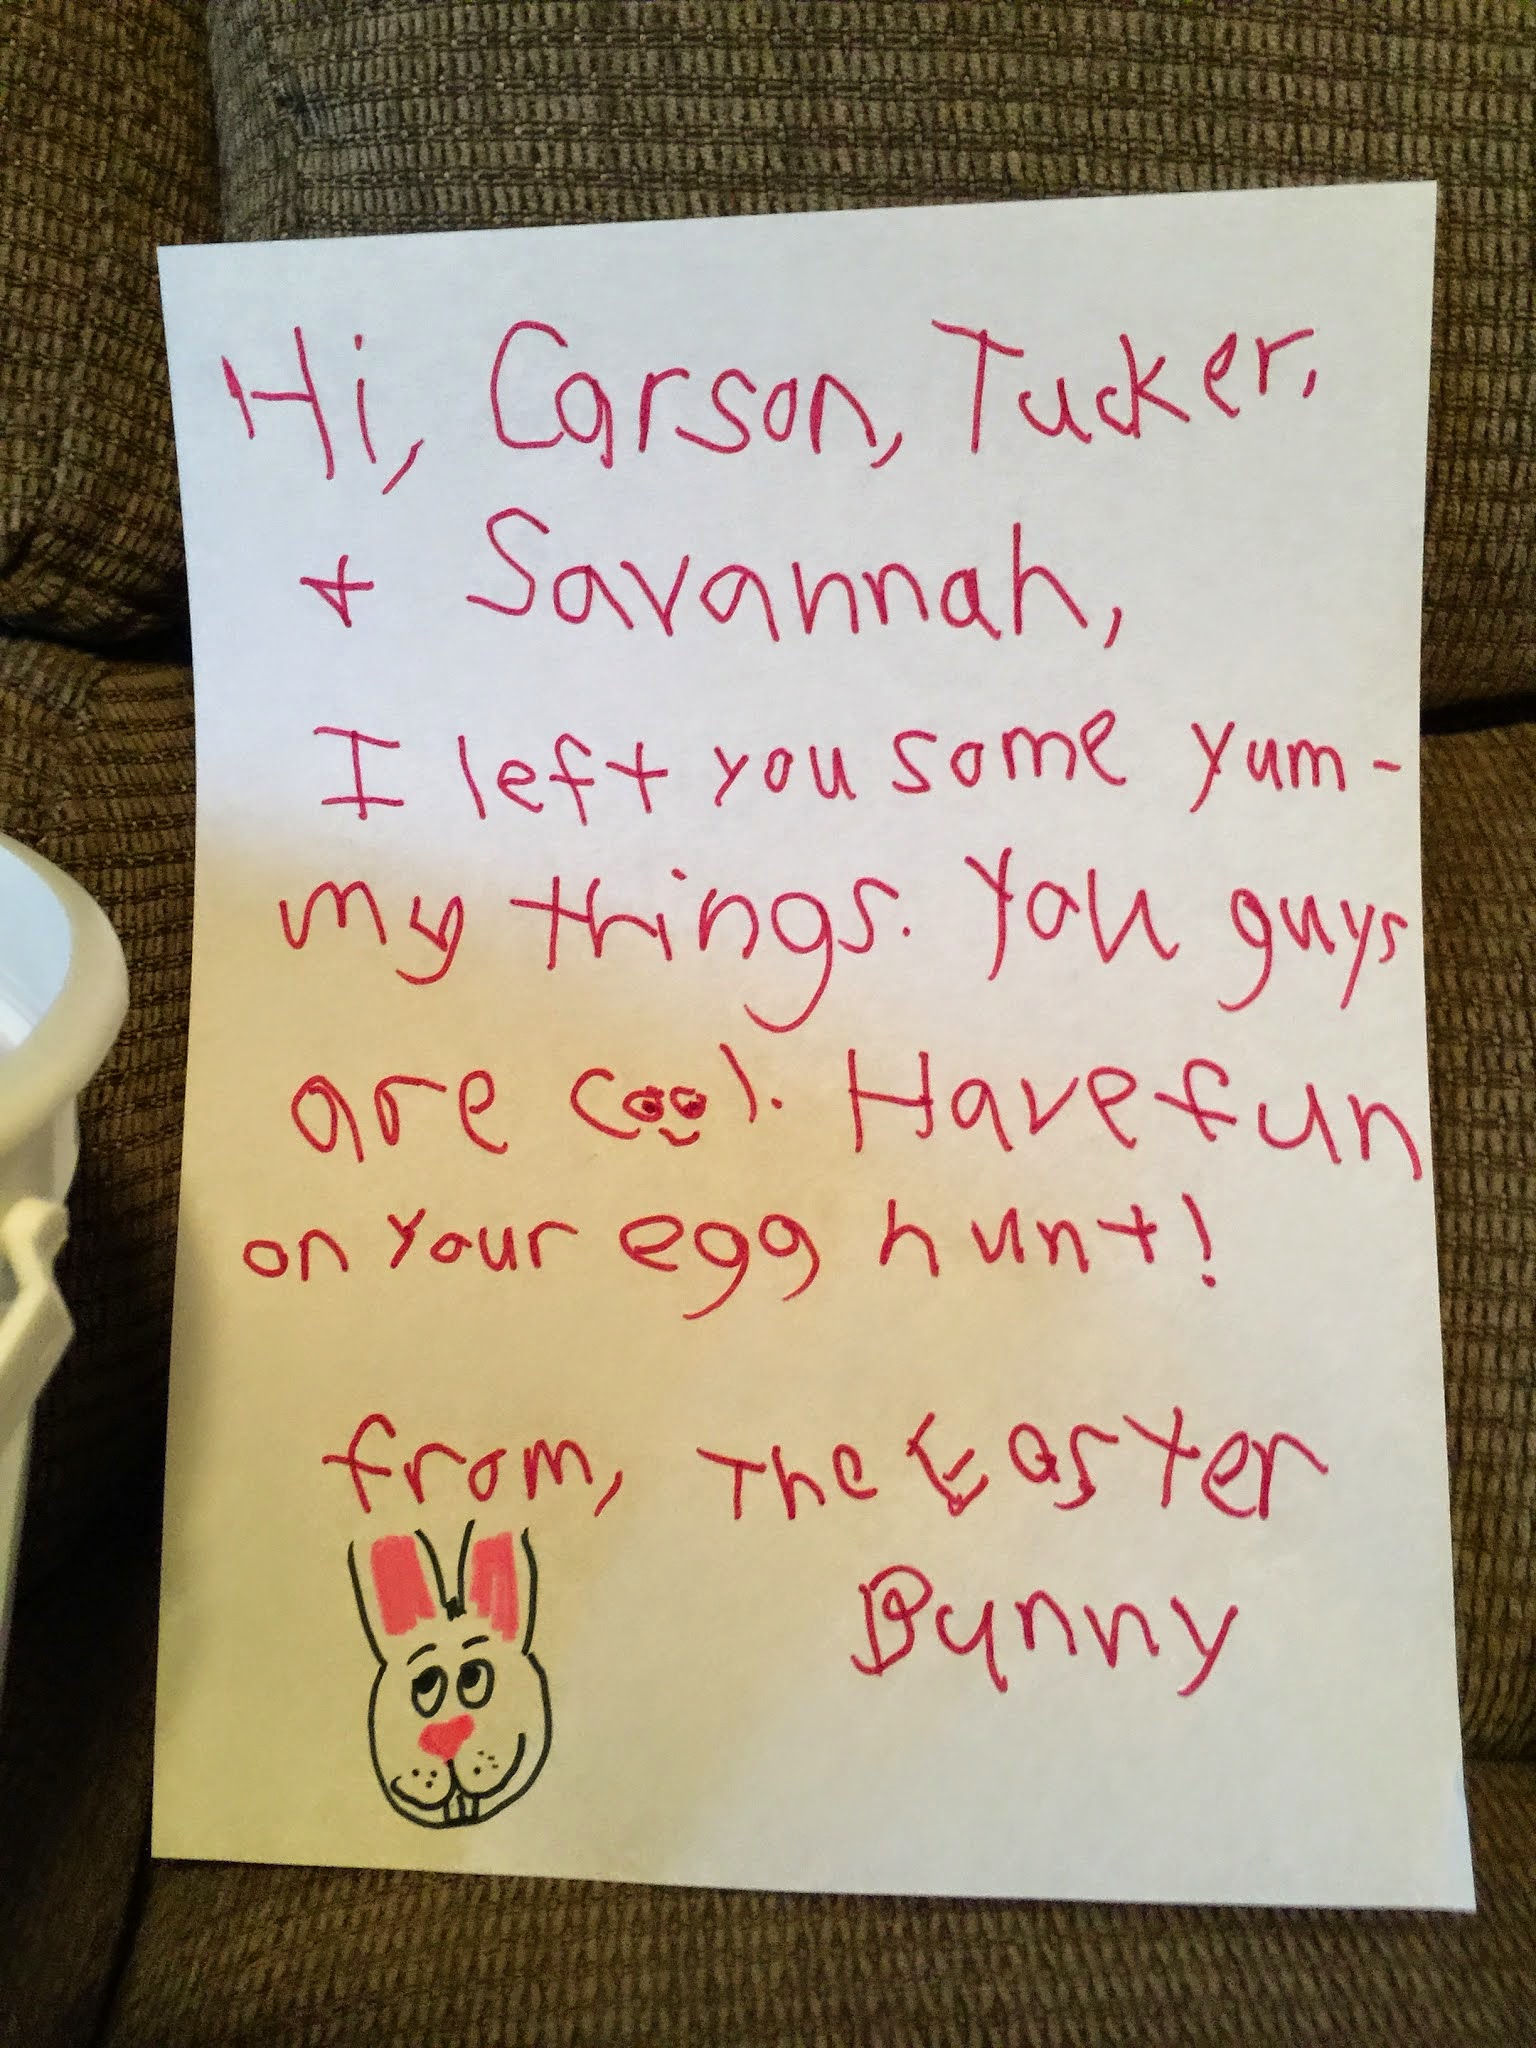 Hi, Carson, Tucker,
+ Savannah,
I left you some yum-
my things. You guys
are cool. Have fun
on your egg hunt!
from, The Easter
Bunny